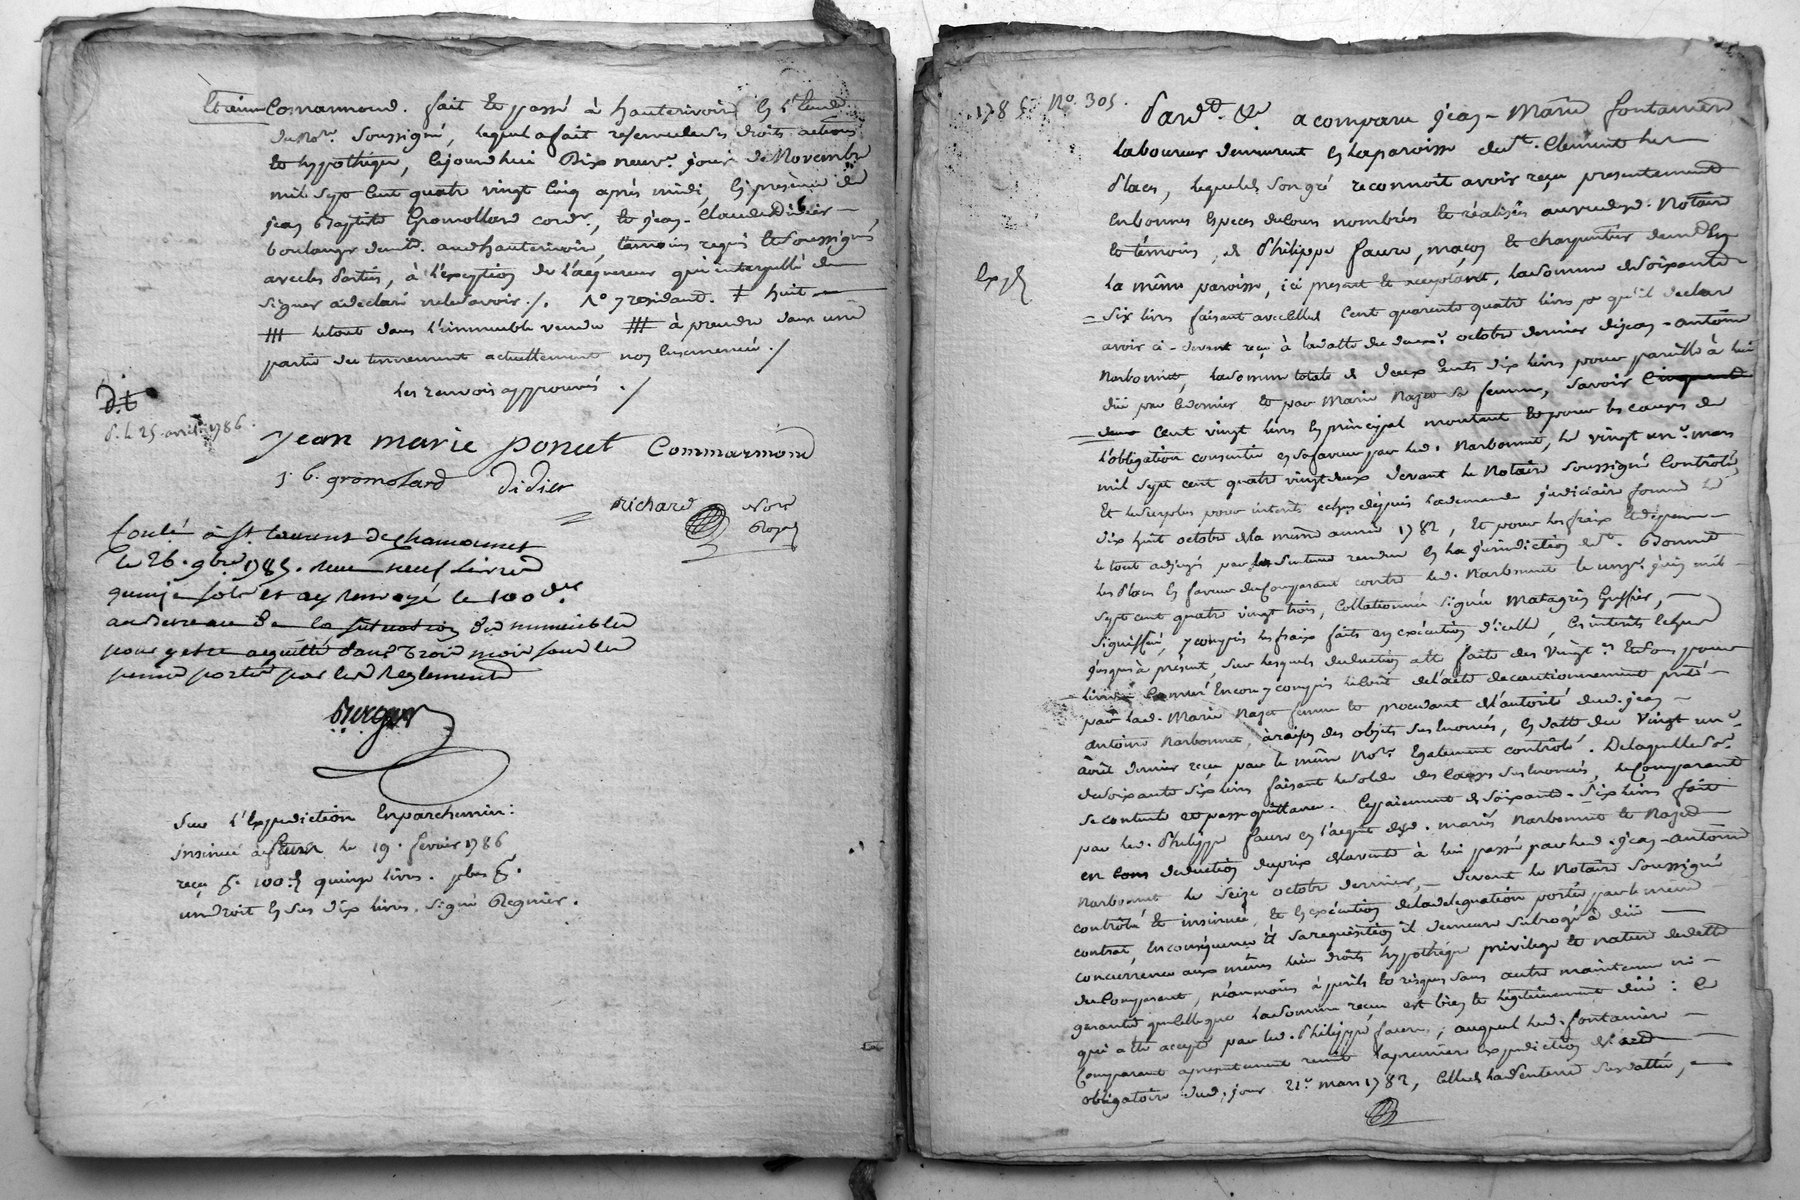 Etienne Comarmond. fait et passé à hauterivoire En l'Etude
du Nore. Soussigné, lequel a fait reserve de ses droits actions
et hypothéque, cejourdhui Dix neuve. jour de Novembre
mil sept Cent quatre vingt Cinq après midi, En présence de
jean Baptiste Gromollard cordr., et jean-Claude Didier
boulanger demt. aud hauterivoire, témoins requis et Soussignés
avec les parties, à l'exception de l'acquereur qui interpellé de
signer a déclaré ne le savoir ./. No y residant. ‡ huit
### le tout dans l'immeuble vendu ### à prendre dans une
partie du tenement actuellement non Ensemencé ./
les renvois approuvés ./
d.t
d. le 25 avril 1786.
jean marie poncet Commarmond
j b. gromolard didier
Richard Nore
Royal
Conlé. à St. Laurent de Chamousset
le 26. 9bre 1785. reçu neuf livres
quinze sols et ay renvoyé le 100 der
au Bureau de la situation des immeubles
pour y etre acquitté dans trois mois sous les
peines portées par les Reglements
Berger
Sur l'Expedition Enparchemin:
insinué à feurs le 19. fevrier 1786
reçu p. 100.e quinze livres. plus p.
un droit En sus dix livres. signé Regnier.
1785. No. 305.
Pard.t &c. a comparu jean-Marie fontaniere
laboureur demeurant En la paroisse de St. Clement les
places, lequel de Son gré reconnoit avoir reçu presentement
En bonnes Especes de Cours nombrées et réalisées au vu dud. Notaire
et témoins, de Philippe faure, maçon et charpentier demt. En
Expé
la même paroisse, ici present et acceptant, la somme de Soixante
Six livres faisant avec Celle de Cent quarante quatre livres qu'il declare
avoir ci-devant reçu à la datte du deuxe. octobre dernier de jean-antoine
Narbonnet, la somme totale de deux Cents dix livres pour pareille à lui
düe par Ce dernier et par Marie Najod sa femme, savoir
Cent vingt livres En principal montant et pour les causes de
l'obligation consentie en sa faveur par led. Narbonnet, le vingt une. mars
mil sept cent quatre vingt deux devant le Notaire soussigné Controlée,
Et le surplus pour interets echus depuis la demande judiciaire formée le
dix huit octobre de la même année 1782, Et pour les frais et depens
le tout adjugé par Sentence rendue En la jurisdiction de St. Bonnet
les places En faveur du Comparant contre led. Narbonnet le onze. juin mil
sept cent quatre vingt trois, Collationnée signée Matagrin Greffier,
signiffiée, y compris les fraix faits en exécution d'icelle, les interets echus
jusques à présent, sur lesquels deduction a été faite des vingt
livres Encore y compris le Coût de l'acte de cautionnement prété
par lad. Marie Najod femme et procedant de l'autorité dud. jean
antoine Narbonnet, à raison des objets sus Enoncés, En datte du vingt une.
août dernier reçu par le même Nore. également controlé. De laquelle Se.
de Soixante Six livres faisant le solde des Causes sus Enoncées, le Comparant
se contente et passe quittance. Ce paiement de Soixante-Six livres fait
par led. Philippe faure En l'acquit desd. mariés Narbonnet et Najod
en deduction du prix de la vente à lui passée par led. jean-antoine
Narbonnet le seize octobre dernier, devant le Notaire soussigné
controlée et insinuée, et En exécution de la délégation portée par le même
contrat, En conséquence et à sa requisition il demeure subrogé à düe
concurrence aux mêmes lieu droits hypothéque privilege et nature de dette
du Comparant, néanmoins à perils et risques sans autre maintenue ni
garantie que Celle que la somme reçue est bien et légitimement düe: Ce
qui a été accepté par led. Philippe faure, auquel led. fontaniere
Comparant a presentement remis la premiere Expedition de l'acte
obligatoire dud. jour 21e. mars 1782, Celle de la Sentence susdattée,